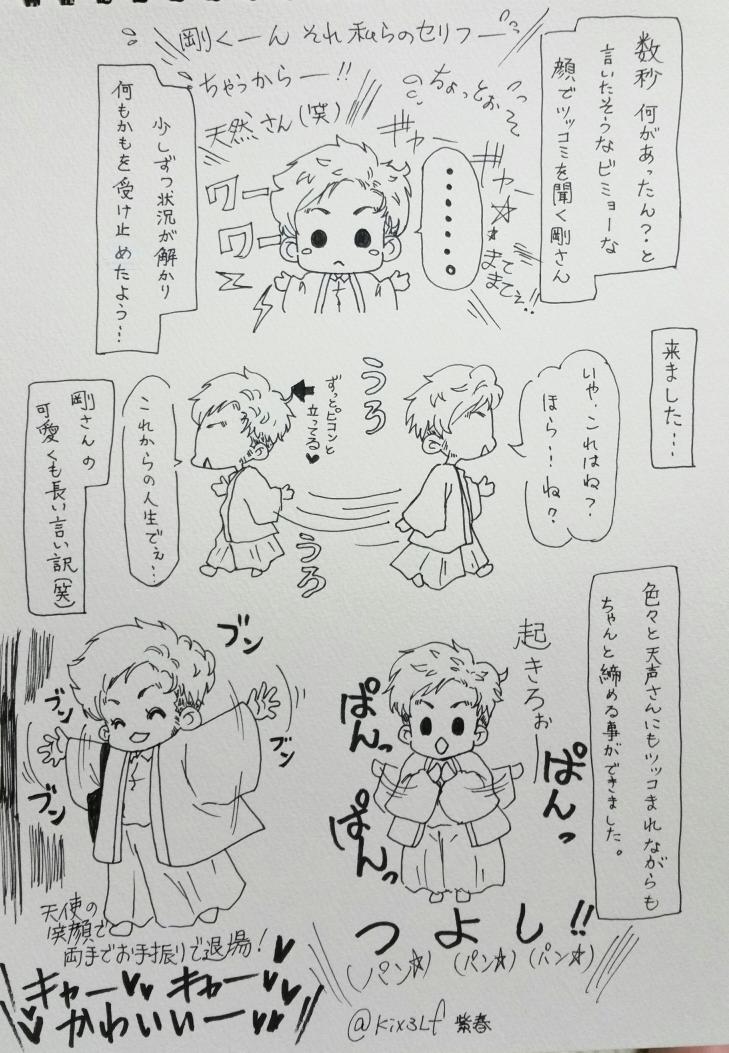 数秒 何があったん？と
言いたそうなビミョーな
顔でツッコミを聞く剛さん
剛くーん それ私らのセリフー
ちゃうからー!!
天然さん(笑)
ちょっとぉ
ギャー
ギャー☆
まてまてぇ!!
ワー
ワー
少しずつ状況が解かり
何もかもを受け止めたよう…
来ました…
いや、これはね？
ほら…ね？
うろ
うろ
ずっとピコンと
立ってる♥
これからの人生でぇ…
剛さんの
可愛くも長い言い訳(笑)
色々と天声さんにもツッコまれながらも
ちゃんと締める事ができました。
起きろぉー
ぱんっ
ぱんっ
ぱんっ
つよし!!
(パン☆) (パン☆) (パン☆)
ブン
ブン
ブン
ブン
天使の
笑顔で
両手でお手振りで退場！
キャー♥♥ キャー♥♥
♥かわいいー♥♥
@kix3Lf 紫春